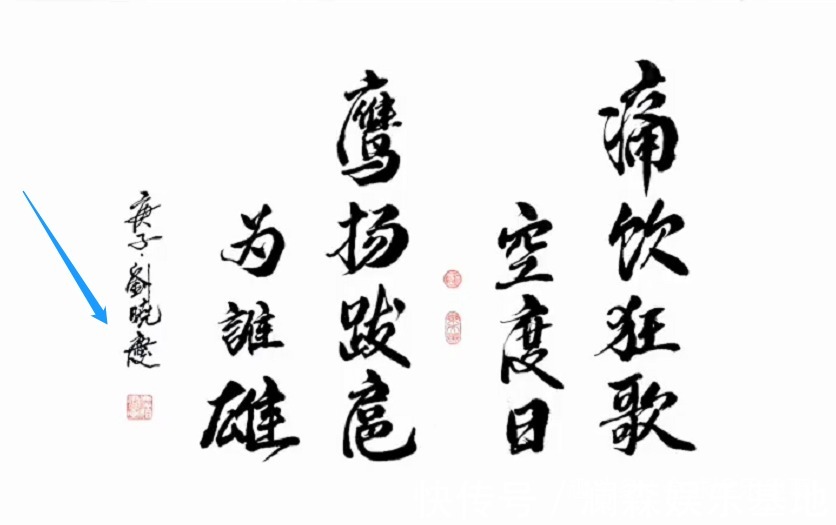 痛饮狂歌
空度日
鹰扬跋扈
为誰雄
庚子·劉晓慶